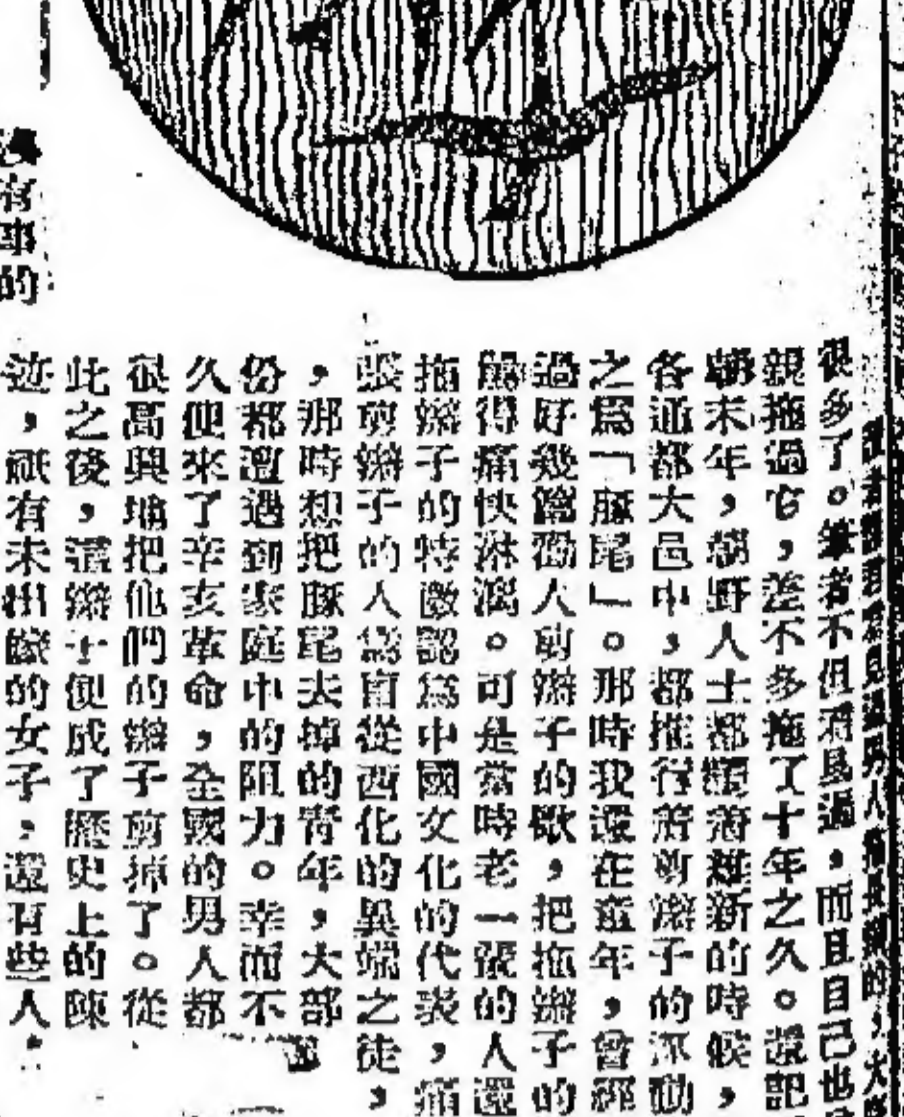 很多了。筆者不但看見過，而且自己也
親拖過它，差不多拖了十年之久。還記
朝末年，朝野人士都醞著維新的時候，
各通都大邑中，都推行著剪辮子的運動
之爲「豚尾」。那時我還在童年，曾經
過好幾篇勸人剪辮子的歌，把拖辮子的
罵得痛快淋漓。可是當時老一輩的人還
拖辮子的特徵認爲中國文化的代表，痛
張剪辮子的人爲盲從西化的異端之徒，
，那時想把豚尾去掉的青年，大部
份都遭遇到家庭中的阻力。幸而不
久便來了辛亥革命，全國的男人都
很高興地把他們的辮子剪掉了。從
此之後，辮士便成了歷史上的陳
迹，祇有未出嫁的女子，還有些人
沒有事的